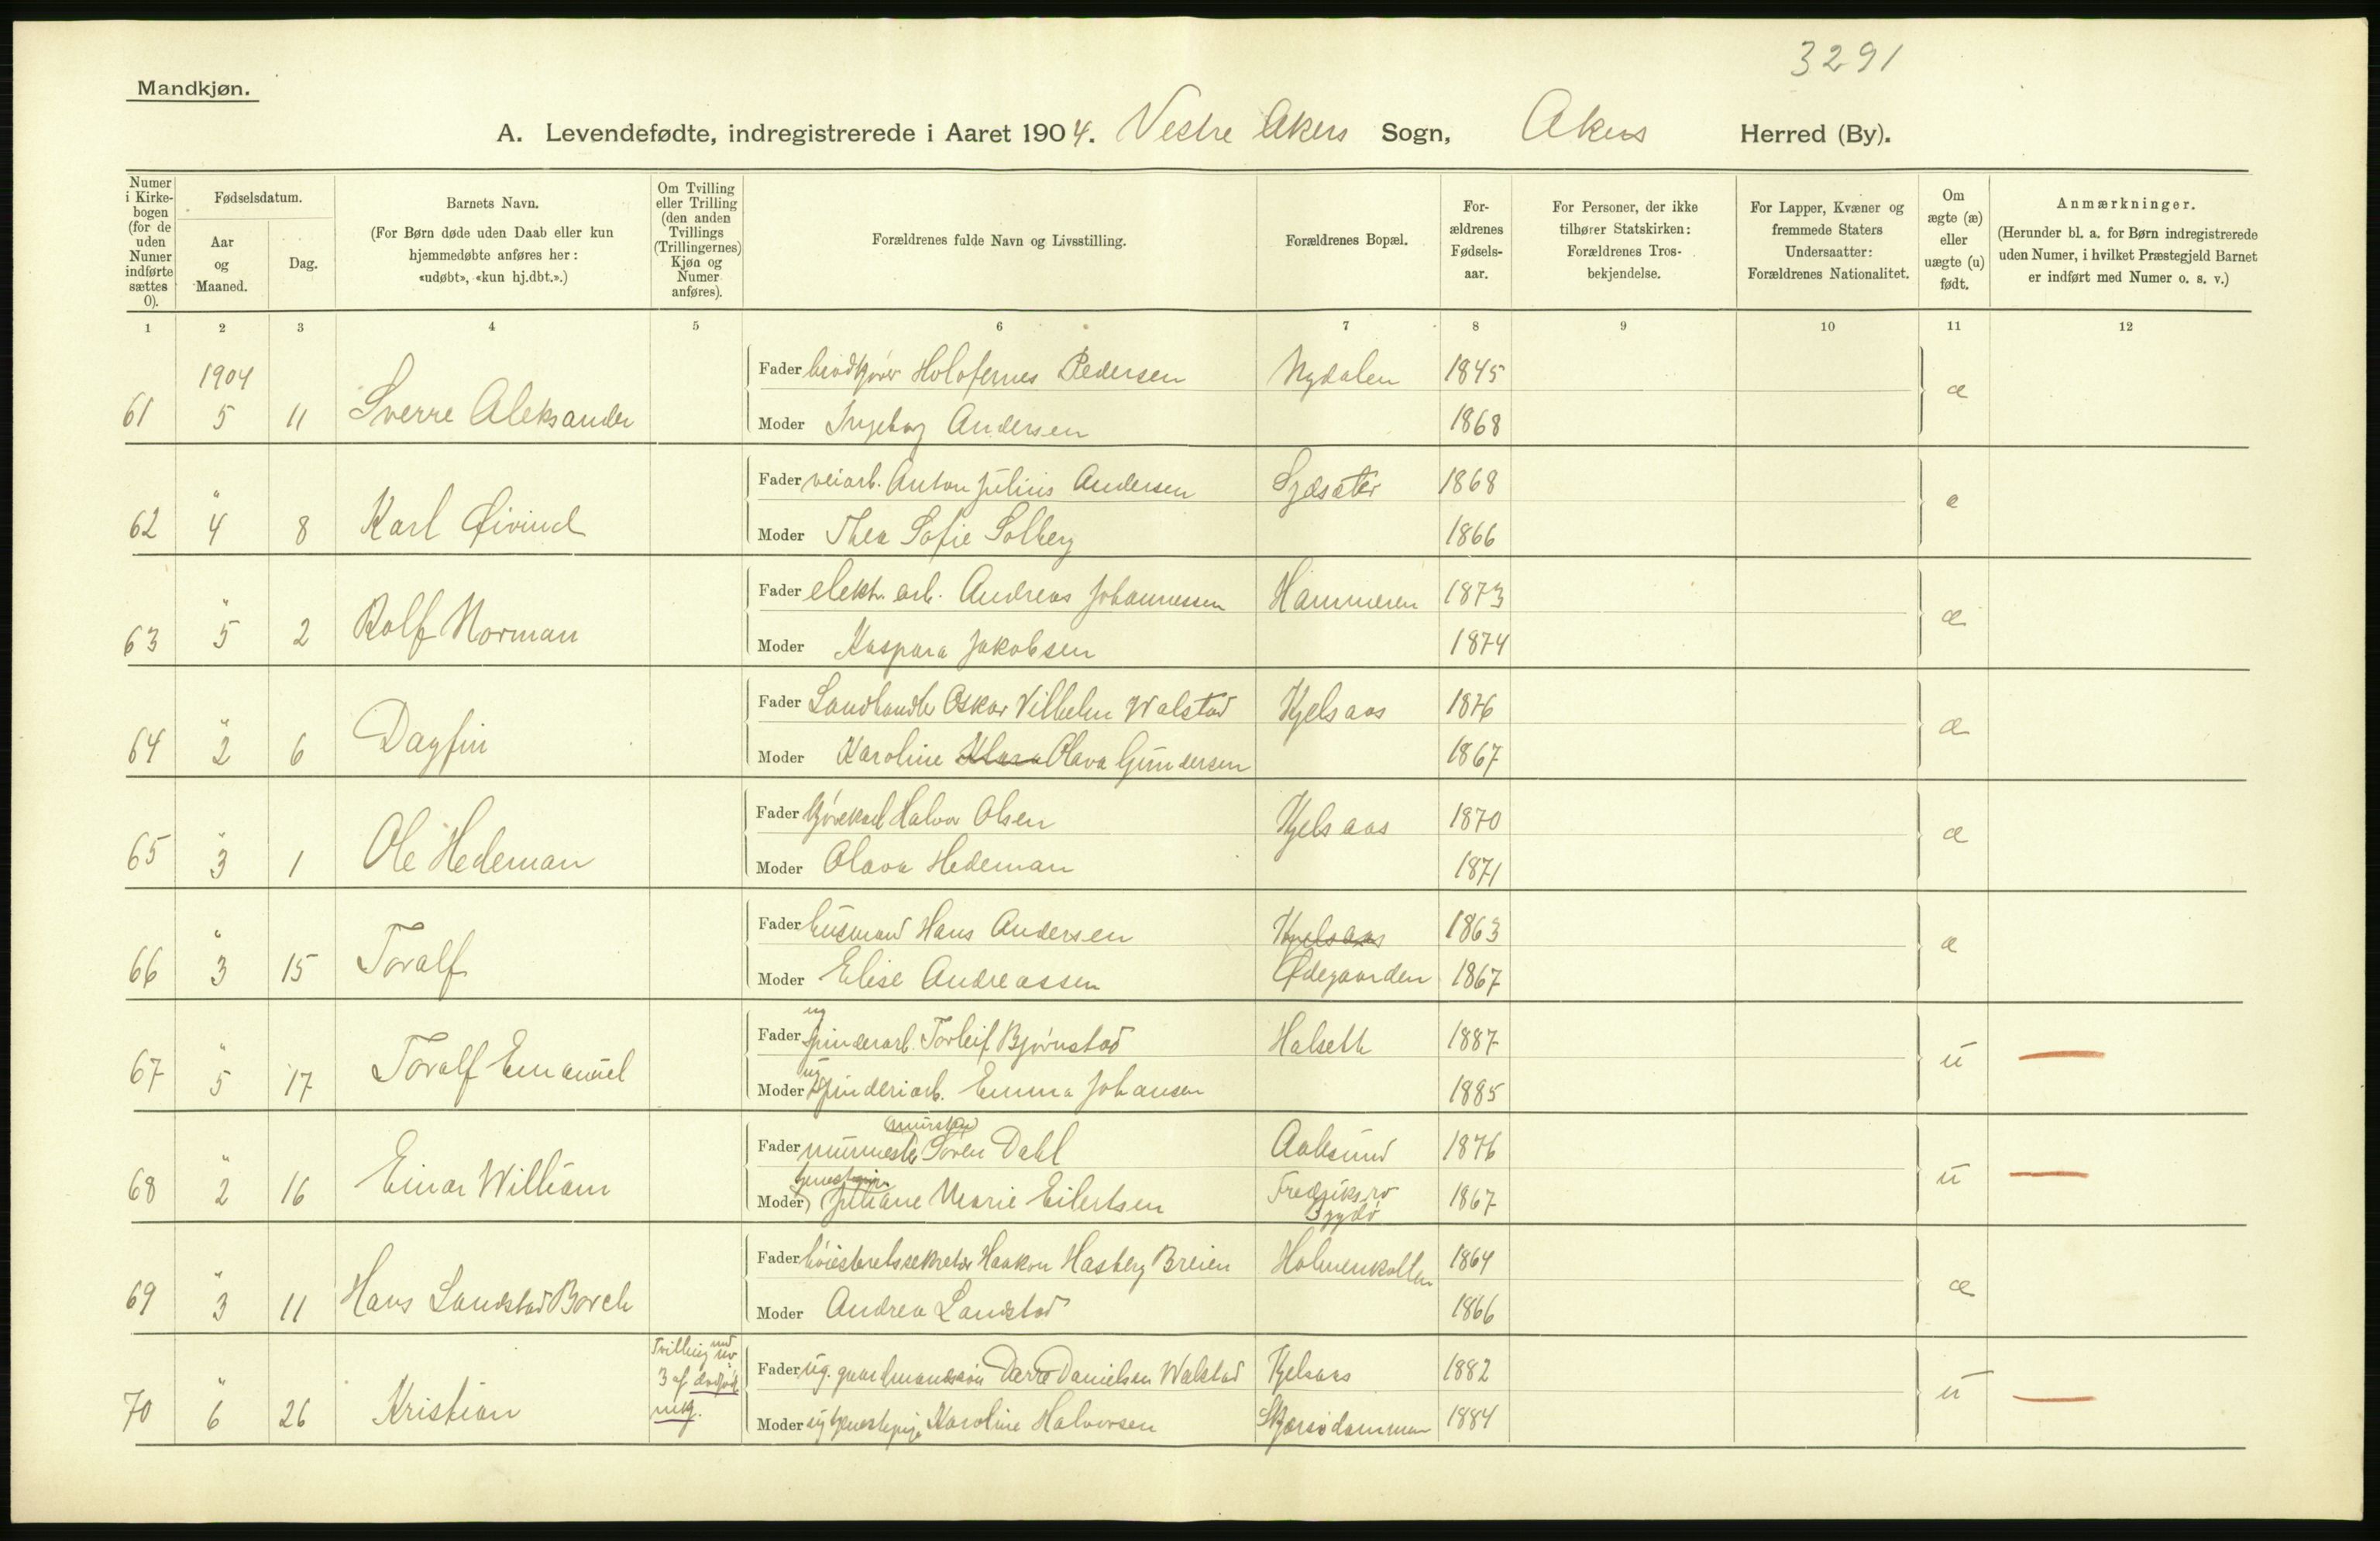 3291
Mandkjøn.
A. Levendefødte, indregistrerede i Aaret 1904. Vestre Akers Sogn, Akers Herred (By).
Numer i Kirkebogen (for de uden Numer indførte sættes 0).
Fødselsdatum.
Aar og Maaned.
Dag.
Barnets Navn.
(For Børn døde uden Daab eller kun hjemmedøbte anføres her: «udøbt», «kun hj.dbt.».)
Om Tvilling eller Trilling (den anden Tvillings (Trillingernes) Kjøn og Numer anføres).
Forældrenes fulde Navn og Livsstilling.
Forældrenes Bopæl.
Forældrenes Fødselsaar.
For Personer, der ikke tilhører Statskirken: Forældrenes Trosbekjendelse.
For Lapper, Kvæner og fremmede Staters Undersaatter: Forældrenes Nationalitet.
Om ægte (æ) eller uægte (u) født.
Anmærkninger.
(Herunder bl. a. for Børn indregistrerede uden Numer, i hvilket Præstegjeld Barnet er indført med Numer o. s. v.)
1 2 3 4 5 6 7 8 9 10 11 12
1904
61 5 11 Sverre Aleksander Fader brødkjører Holofernes Pedersen Nydalen 1845 æ
Moder Ingeborg Andersen 1868
62 " 4 8 Karl Øivind Fader veiarb. Anton Julius Andersen 1868 æ
Moder Thea Sofie Solberg 1866
63 " 5 2 Rolf Norman Fader elektr. arb. Andreas Johannessen Hammeren 1873 æ
Moder Kaspara Jakobsen 1874
64 " 2 6 Dagfin Fader Landhandler Oskar Vilhelm Walstad Kjelsaas 1876 æ
Moder Karoline Klara Olava Gundersen 1867
65 " 3 1 Ole Hedeman Fader kjørekarl Halvor Olsen Kjelsaas 1870 æ
Moder Olava Hedeman 1871
66 " 3 15 Toralf Fader husmand Hans Andersen Kjelsaas 1863 æ
Moder Elise Andreassen Ødegaarden 1867
67 " 5 17 Toralf Emanuel Fader ug spinderarb. Torleif Bjørnstad Halseth 1887 u
Moder ug spinderiarb. Emma Johansen 1885
68 " 2 16 Einar William Fader murmester Søren Dahl Aalesund 1876 u
Moder Juliane Marie Eilertsen Fredriksro Bygdø 1867
69 " 3 11 Hans Landstad Borch Fader høiesteretssekretær Haakon Hasberg Breien Holmenkollen 1864 æ
Moder Andrea Landstad 1866
70 " 6 26 Kristian Tvilling med no 3 af dødfødte Fader ug. gaardmandssøn Danielsen Walstad Kjelsaas 1882 u
Moder ug tjenestepige Karoline Halvorsen Skjærsjødammen 1884